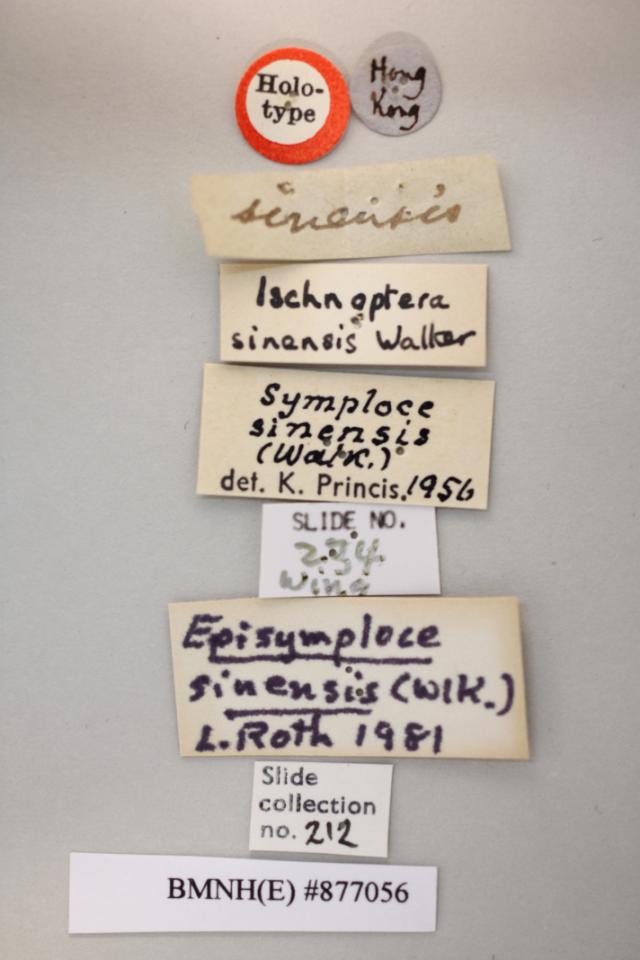 Holo-
type
Hong
Kong
sinensis
Ischnoptera
sinensis Walker
Symploce
sinensis
(Walk.)
det. K. Princis. 1956
SLIDE NO.
234
Wing
Episymploce
sinensis (Wlk.)
L. Roth 1981
Slide
collection
no. 212
BMNH(E) #877056